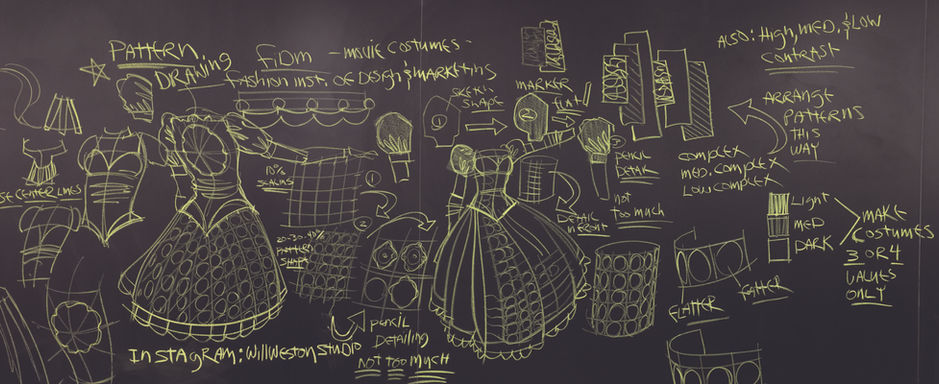 PATTERN
DRAWING
FIDM
- MOVIE COSTUMES -
FASHION INST. OF DESIGN & MARKETING
SKETCH
SHAPE
1
MARKER
FLAT
2
ALSO: HIGH, MED. & LOW
CONTRAST
ARRANGE
PATTERNS
THIS
WAY
COMPLEX
MED. COMPLEX
LOW COMPLEX
3
PENCIL
DETAIL
NOT
TOO MUCH
10%
SEAMS
1
CENTER LINES
20-30-40%
PATTERN
SHAPE
2
DETAIL
IN FRONT
LIGHT
MED
DARK
MAKE
COSTUMES
3 OR 4
VALUES
ONLY
FLATTER
PENCIL
DETAILING
NOT TOO MUCH
INSTAGRAM: WILLWESTONSTUDIO